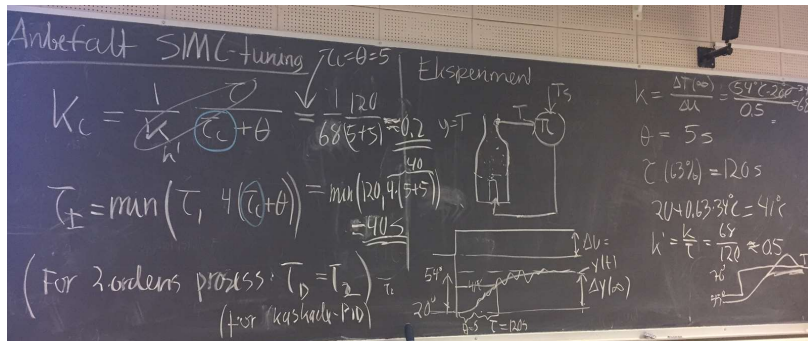 Anbefalt SIMC-tuning
τc=θ=5
Kc = 1/k τ/(τc+θ) = 1/68 120/(5+5) ≈ 0.2
k'
τI = min(τ, 4(τc+θ)) = min(120, 4·(5+5))
40
= 40s
(For 2.ordens prosess: τD = τ2)
(for kaskade-PID)
Eksperiment
Ts
T
y=T
TC
ΔU=
y(t)
54°
Δy(∞)
20°
θ=5 τ=120s
k = ΔT(∞)/Δu = 0.5
θ = 5s
τ (63%) = 120s
20+0,63·34°C = 41°C
k' = k/τ = 68/120 ≈ 0.5
70°